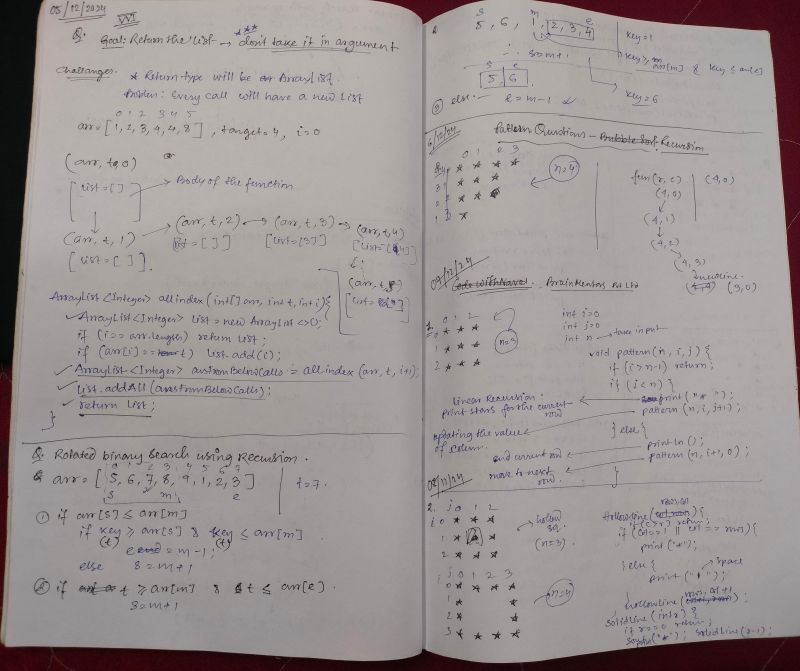 05/12/2024
VVI
Q. Goal: Return the list → don't take it in argument
Challanges.
* Return type will be ArrayList.
Problem: Every call will have a new list
0 1 2 3 4 5
arr = [1, 2, 3, 4, 4, 8], target = 4, i = 0
(arr, t, 0)
[list = [ ] → Body of the function
(arr, t, 1) → (arr, t, 2) → (arr, t, 3) → (arr, t, 4)
[list = [ ] ]. list = [ ] [list = [3] ]
(arr, t,
ArrayList <Integer> allindex (int[] arr, int t, int i) {
ArrayList <Integer> list = new ArrayList <>();
if (i == arr.length) return list;
if (arr[i] == t) list.add(i);
ArrayList <Integer> ansfromBelowCalls = allindex (arr, t, i+1);
list.addAll (ansfromBelowCalls);
return list;
}
Q. Rotated binary search using Recursion.
0 1 2 3 4 5 6 7
arr = [5, 6, 7, 8, 9, 1, 2, 3] t = 7.
s m e
① if arr[s] ≤ arr[m]
if key ≥ arr[s] & key ≤ arr[m]
(t) (t)
e = m-1;
else s = m+1
② if t ≥ arr[m] & t ≤ arr[e].
s = m+1
s m e
5, 6, 1, 2, 3, 4
key = 1
key ≥ m
arr[m] & key ≤ arr[e]
∴ s = m+1
s e
5 6
key = 6
③ else. e = m-1
6/12/24
Pattern Questions - Bubble Sort Recursion
0 1 2 3
* * * *
* * *
* *
*
n=4
fun(r, c) (4,0)
(4,0)
(4,1)
(4,2)
(4,3)
newline.
(4,4) (3,0)
09/12/24
Code with Naval. BrainMentors Pvt Ltd
0 1 2
0 * * *
1 * * *
2 * * *
n=3
int i=0
int j=0
int n → take input
void pattern (n, i, j) {
if (i > n-1) return;
if (j < n) {
print ("* ");
pattern (n, i, j+1);
} else {
println ();
pattern (n, i+1, 0);
}
linear Recursion.
print stars for the current row
updating the value of column.
end current row
move to next row.
2. j 0 1 2
i 0 * * *
1 * *
2 * * *
hollow
(n=3)
j 0 1 2 3
i 0 * * * *
1 * *
2 * *
3 * * * *
n=4
hollowline (
return;
print ("*");
} else {
print (" "); → space
}
hollowline (
}
solidline (int r) {
if r==0 return;
print ("*"); solidline (r-1);